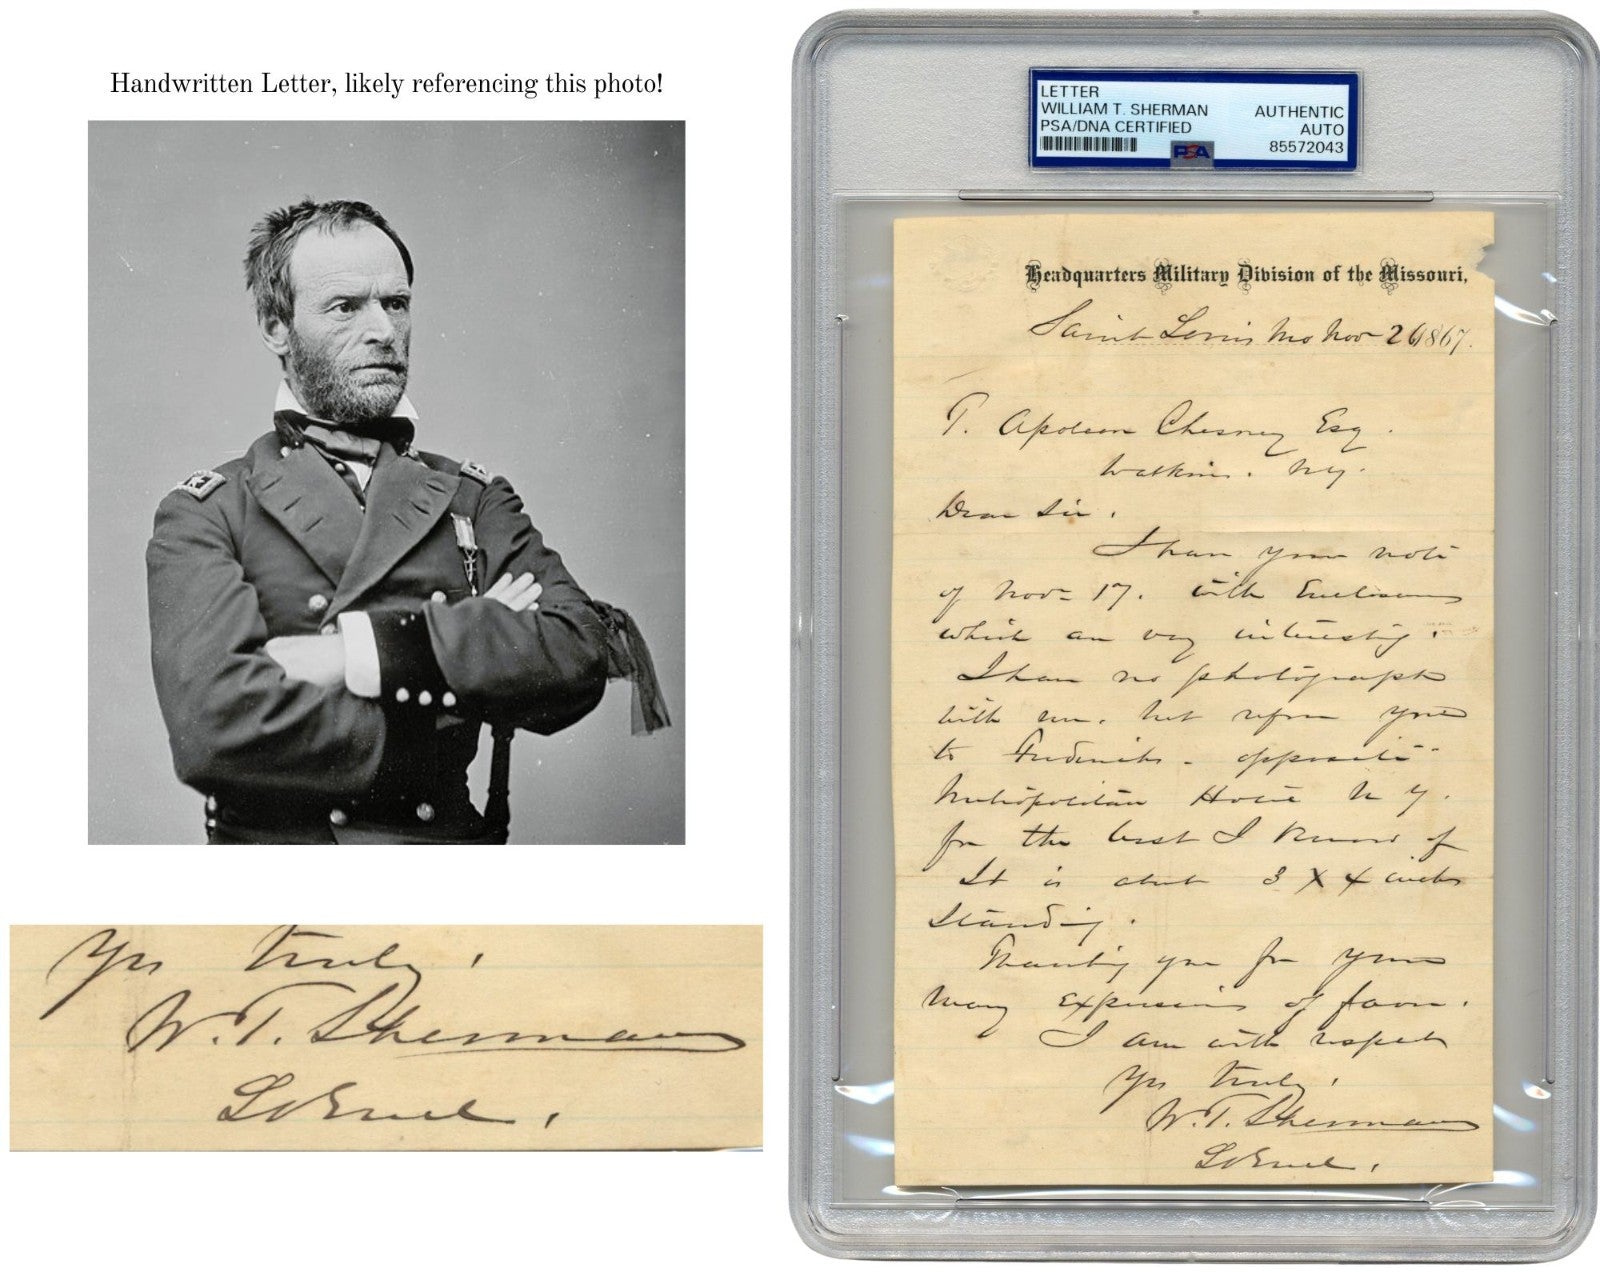 Handwritten Letter, likely referencing this photo!
Yrs truly,
W. T. Sherman
Lt Genl.
LETTER
WILLIAM T. SHERMAN
PSA/DNA CERTIFIED
AUTHENTIC
AUTO
85572043
PSA
Headquarters Military Division of the Missouri,
Saint Louis Mo Nov 26 1867.
T. Apoleon Chesney Esq.
Watkins. N.Y.
Dear Sir.
I have your note
of Nov 17. with Enclosures
which are very interesting.
I have no photograph
with me. but refer you
to Fredericks - opposite
Metropolitan Hotel N Y.
for the best I know of
It is about 3 X 4 inches
standing.
Thanking you for your
many expressions of favor.
I am with respect
Yrs truly,
W. T. Sherman
Lt Genl.